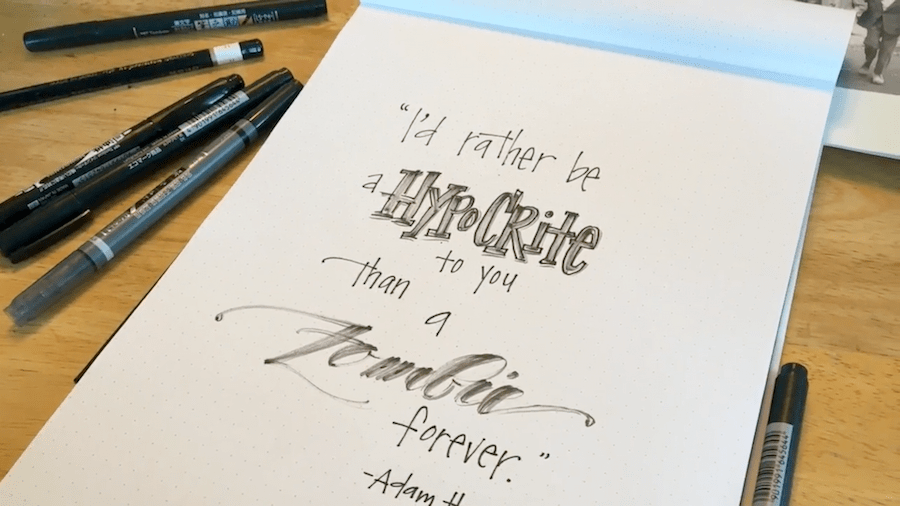 "I'd rather be
a HYPOCRite
to you
than
a
Zombie
forever."
-Adam H
4901991645644